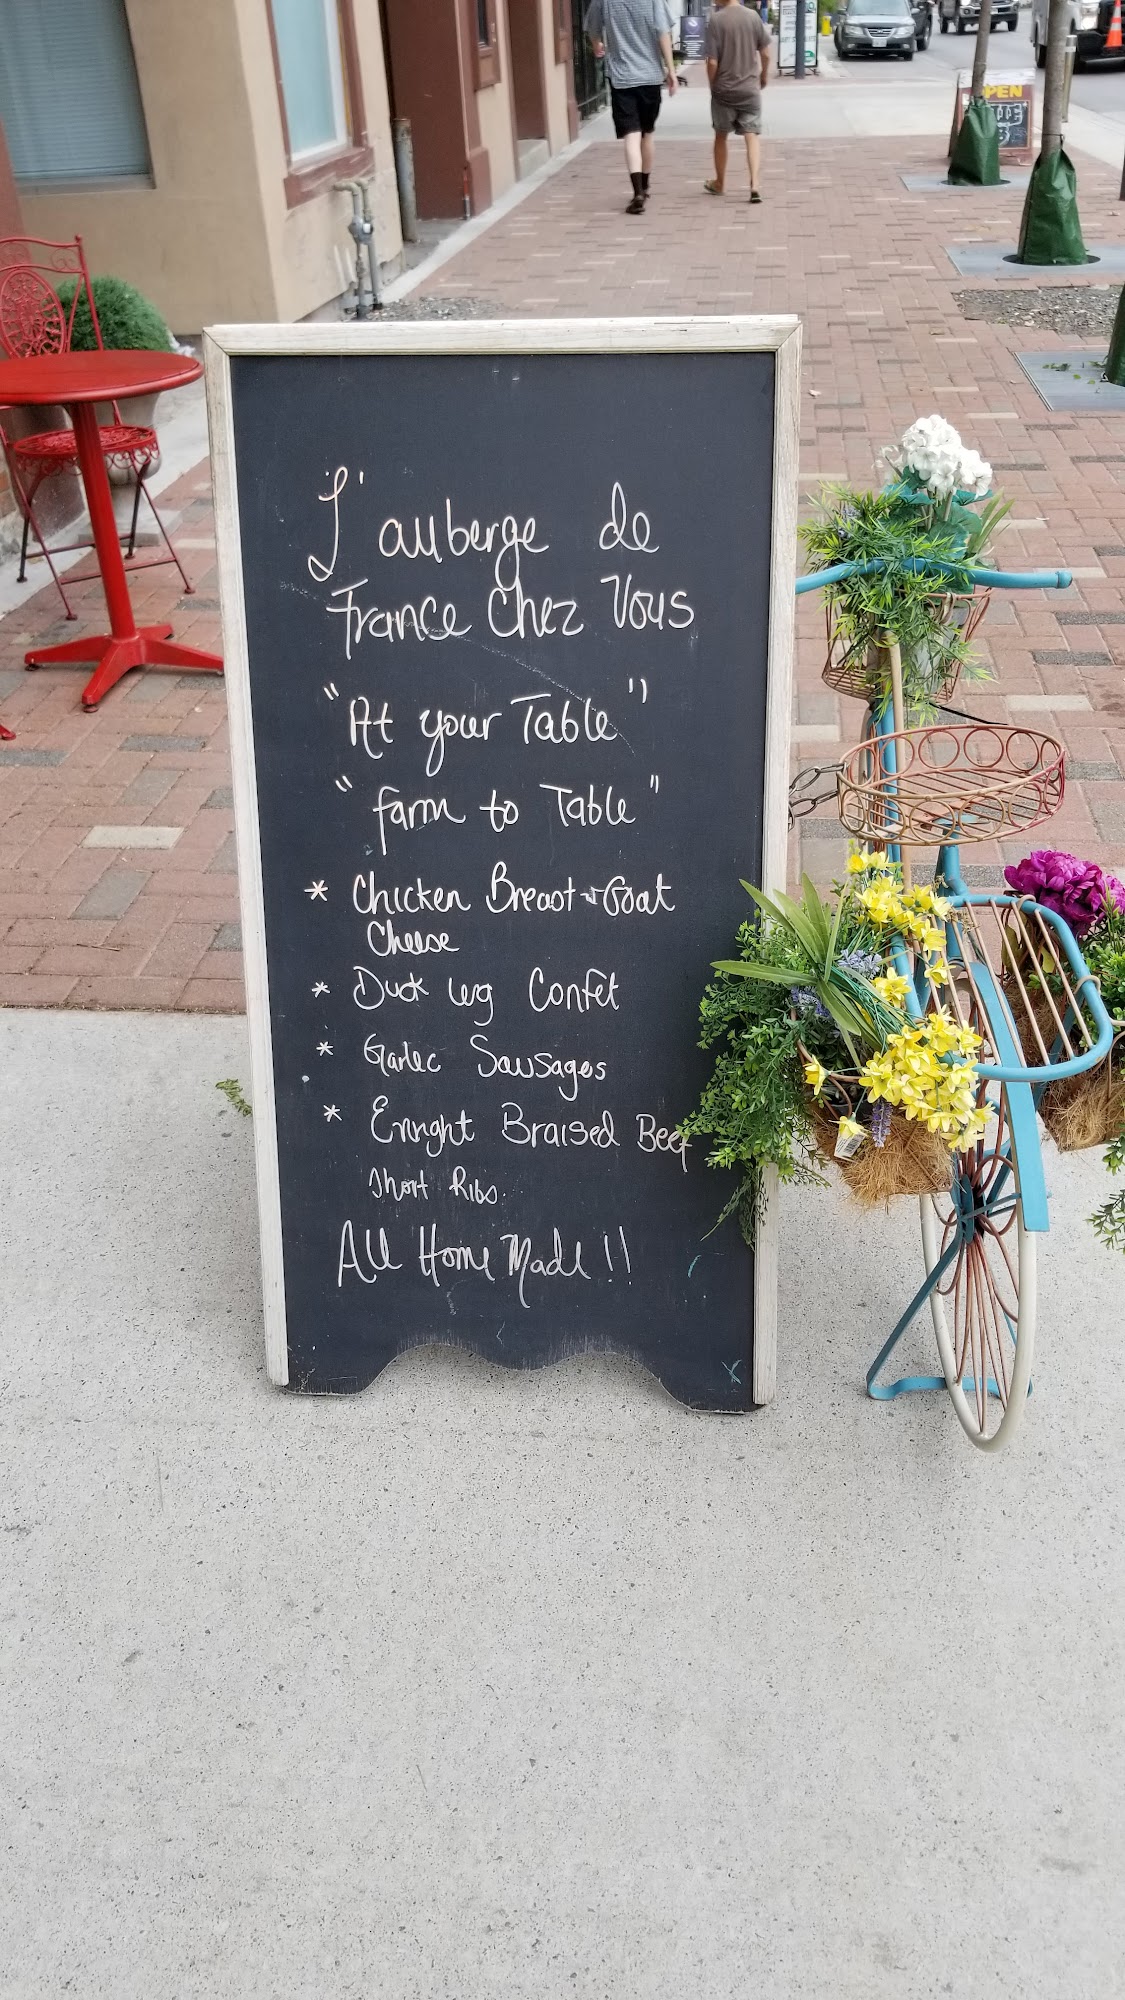 L'auberge de
France Chez Vous
"At your Table"
"farm to Table"
* Chicken Breast + Goat
Cheese
* Duck Leg Confit
* Garlic Sausages
* Enright Braised Beef
Short Ribs.
All Home Made !!
OPEN